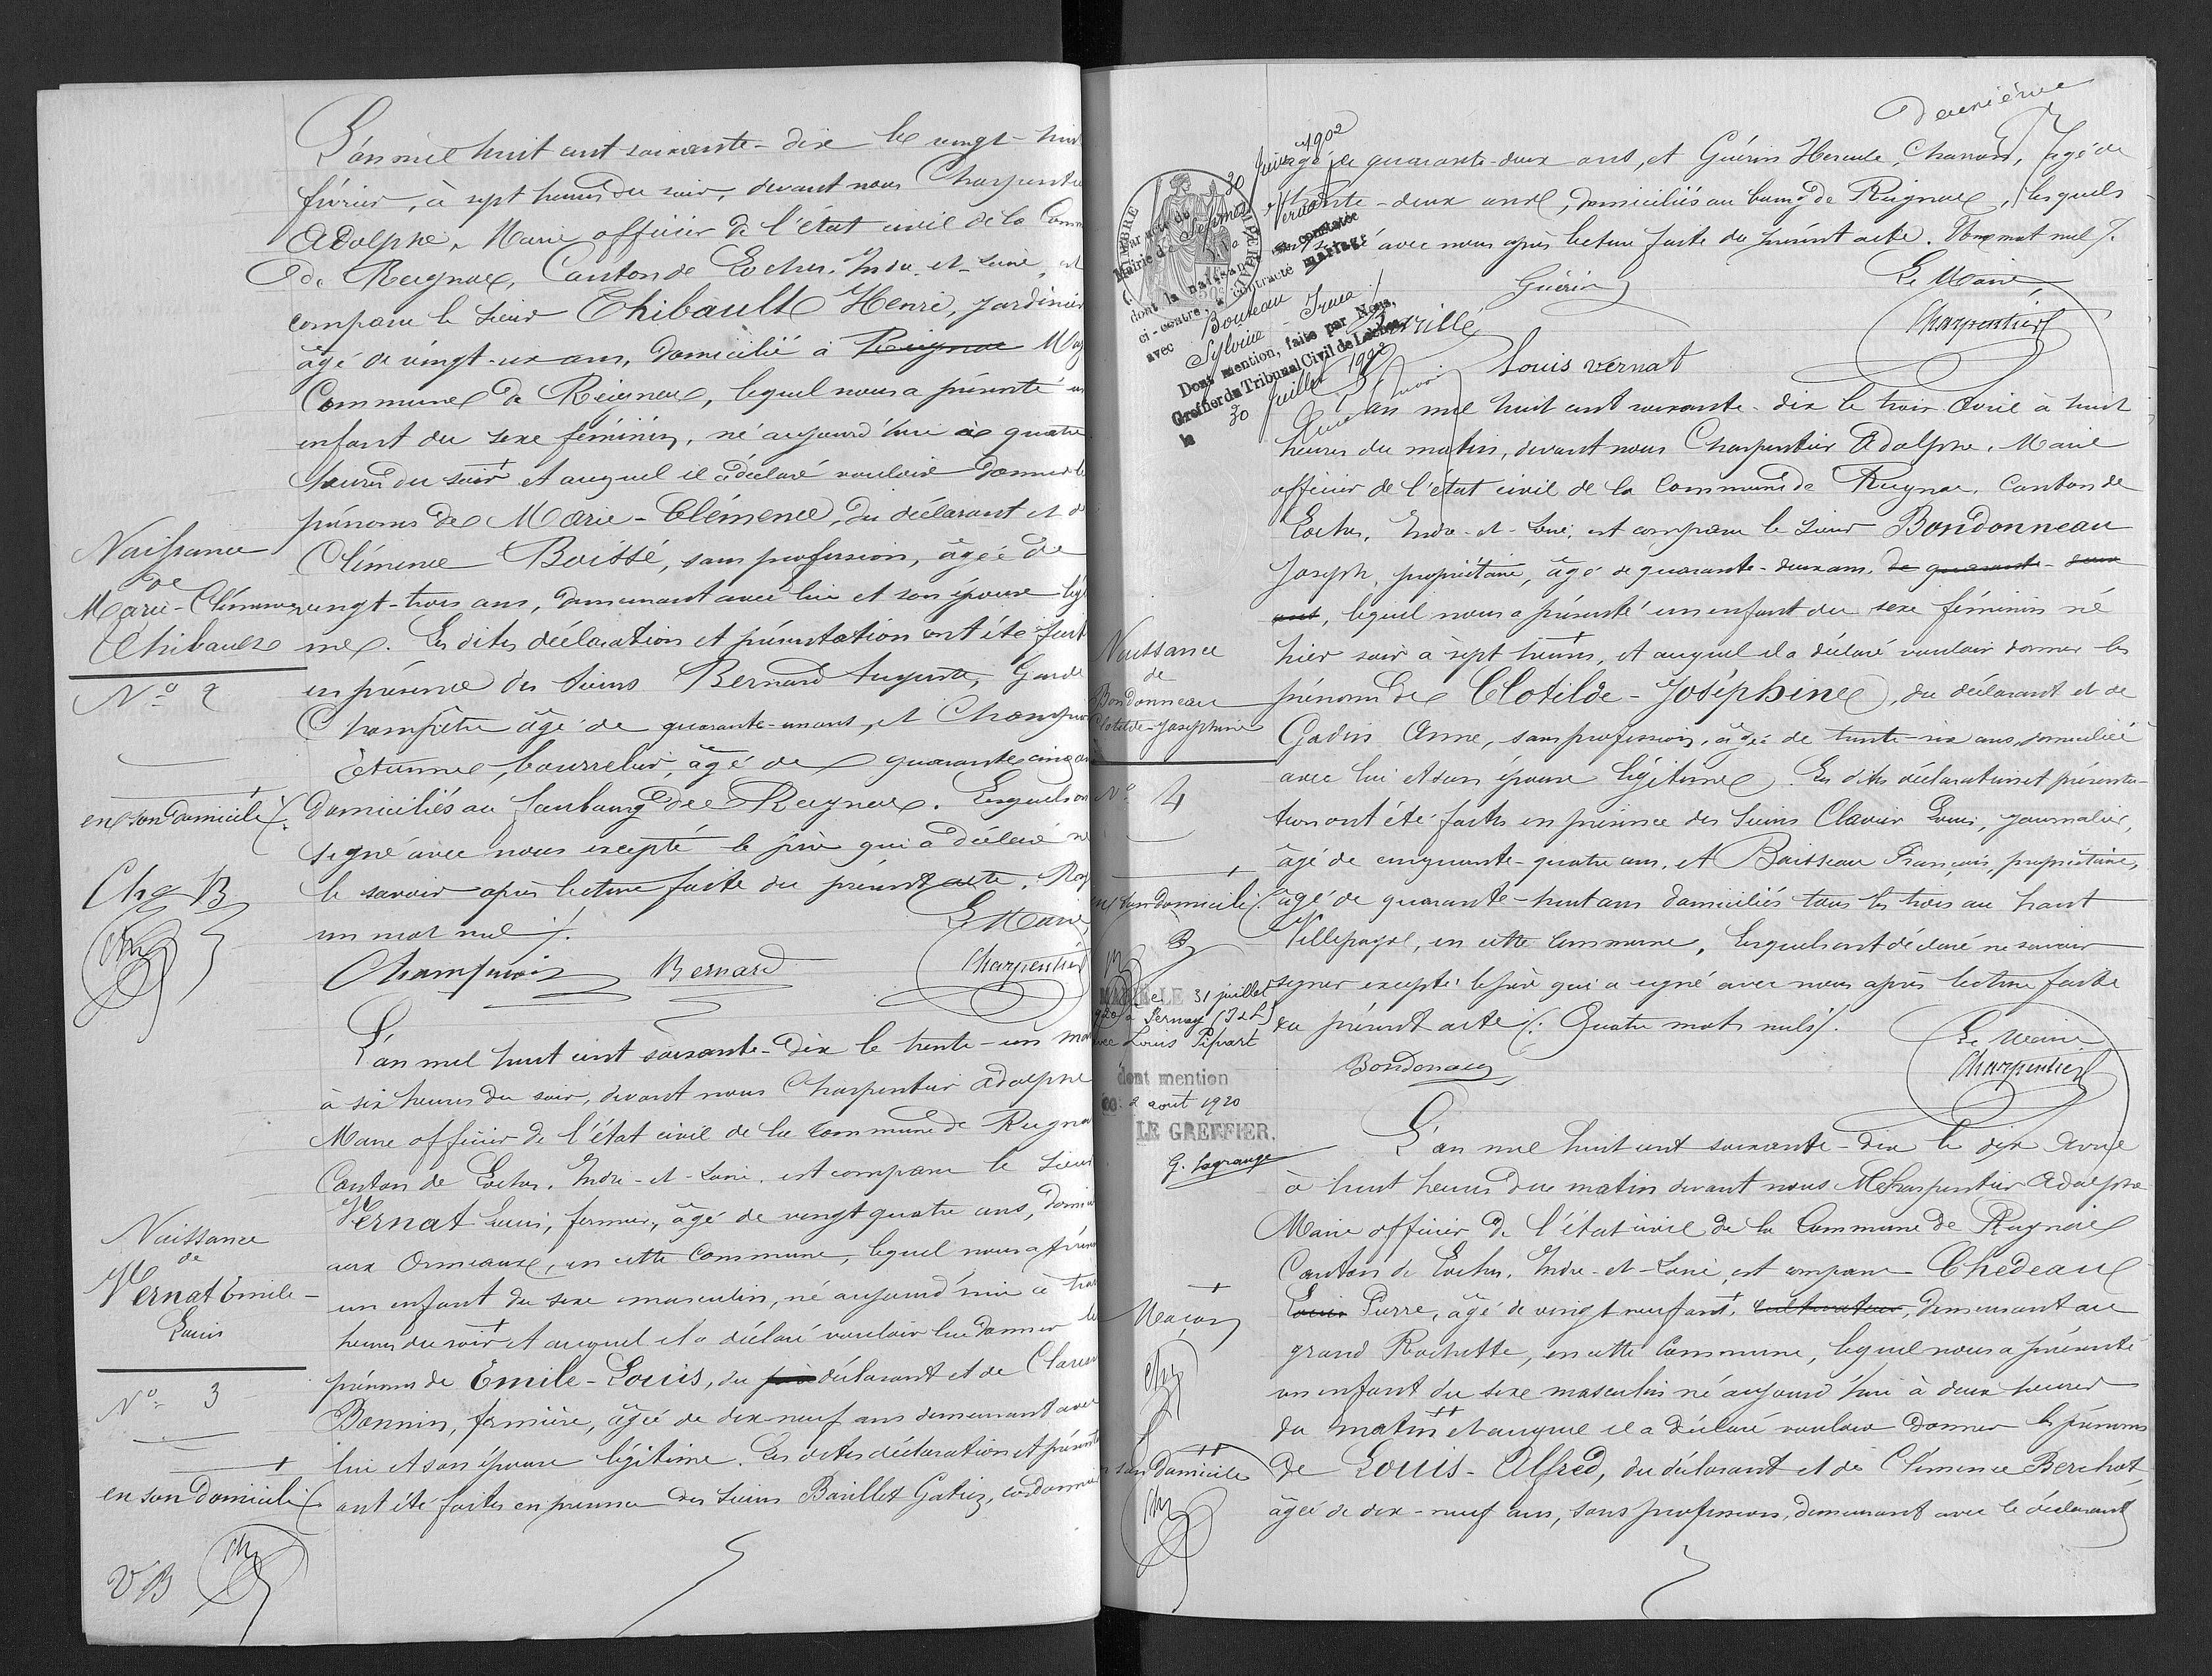 L'an mil huit cent soixante-dix le vingt-huit
février, à sept heures du soir, devant nous Charpentier
Adolphe, Maire officier de l'état civil de la Com
de Reignac, Canton de Loches, Indre-et-Loire, est
comparu le sieur Thibault Henri, jardinier
âgé de vingt-six ans, domicilié à Reignac
Commune de Reignac, lequel nous a présenté un
enfant du sexe féminin, né aujourd'hui à quatre
heures du soir + et auquel il a déclaré vouloir donner les
prénoms de Marie-Clémence, du déclarant et de
Clémence Boissé, sans profession, âgée de
vingt-trois ans, demeurant avec lui et son épouse légi
me. Les dites déclaration et présentation ont été fait
en présence des sieurs Bernard Auguste, Garde
Champêtre âgé de quarante-un ans, et Champ
Etienne, bourrelier, âgé de quarante cinq ans
domiciliés au faubourg de Reignac. Lesquels ont
signé avec nous excepté le père qui a déclaré ne
le savoir après lecture faite du présent acte. Ray
un mot nul ./.
Le Maire,
Bernard
Charpentier
Naissance
de
Marie-Clémence
Thibault
N° 2
+
en son domicile ./.
Ch B
L'an mil huit cent soixante-dix le trente-un mars
à six heures du soir, devant nous Charpentier Adolphe
Maire officier de l'état civil de la Commune de Reignac
Canton de Loches, Indre-et-Loire, est comparu le sieur
Vernat Louis, fermier, âgé de vingt quatre ans, domi
aux Ormeaux, en cette Commune, lequel nous a présen
un enfant du sexe masculin, né aujourd'hui à trois
heures du soir + et auquel il a déclaré vouloir lui donner les
prénoms de Emile-Louis, du père déclarant et de
Bonnin, fermière, âgée de dix-neuf ans demeurant avec
lui et son épouse légitime. Les dites déclaration et présenta
ont été faites en présence des sieurs Barillet Gatien, cordonnier
Naissance
de
Vernat Emile-
Louis
N° 3
+
en son domicile ./.
V B
âgé de quarante-deux ans, et Guérin Hercule, Charron, âgé de
-deux ans, domiciliés au bourg de Reignac, lesquels
ont signé avec nous après lecture faite du présent acte. Un mot nul ./.
Guérin
Le Maire,
Charpentier
Louis vernat
Mairie d
30 Juillet 1902
dont la naissance est constatée
ci-contre, a contracté mariage
avec Bouteau
Sylvine-Irma
Dont mention, faite par Nous,
Greffier du Tribunal Civil de Loches,
le 30 juillet 1902
L'an mil huit cent soixante-dix le trois Avril à huit
heures du matin, devant nous Charpentier Adolphe, Maire
officier de l'état civil de la Commune de Reignac, Canton de
Loches, Indre-et-Loire, est comparu le sieur Bondonneau
Joseph, propriétaire, âgé de quarante-deux ans, de quarante-deux
ans, lequel nous a présenté un enfant du sexe féminin né
hier soir à sept heures, + et auquel il a déclaré vouloir donner les
prénoms de Clotilde-Joséphine, du déclarant et de
Gadin Anne, sans profession, âgée de trente-six ans, domiciliée
avec lui et son épouse légitime. Les dites déclaration et présenta-
tion ont été faites en présence des sieurs Clavier Louis, journalier,
âgé de cinquante-quatre ans, et Boisseau François, propriétaire,
âgé de quarante-huit ans domiciliés tous les trois au haut
Villepays, en cette commune. Lesquels ont déclaré ne savoir
signer excepté le père qui a signé avec nous après lecture faite
du présent acte ./. Quatre mots nuls ./.
Le Maire
Charpentier
Naissance
de
Bondonneau
Clotilde-Joséphine
N° 4
+
en son domicile ./.
B
31 juillet
1920 à Pernay (I & L)
avec Louis Pipart
dont mention
2 août 1920
LE GREFFIER,
G. Lagrange
L'an mil huit cent soixante-dix le dix Avril
à huit heures du matin devant nous Charpentier Adolphe
Maire officier de l'état civil de la Commune de Reignac
Canton de Loches, Indre-et-Loire, est comparu Chedeau
Louis Pierre, âgé de vingt neuf ans, + cultivateur, demeurant au
grand Rochette, en cette Commune, lequel nous a présenté
un enfant du sexe masculin né aujourd'hui à deux heures
du matin ++ et auquel il a déclaré vouloir donner les prénoms
de Louis-Alfred, du déclarant et de Clémence Berchot
âgée de dix-neuf ans, sans profession, demeurant avec le déclarant
+
Maçon
++
en son domicile